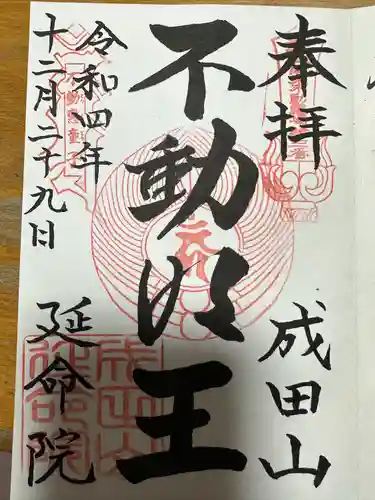 奉拝
成田山
不動明王
令和四年
十二月二十九日
延命院